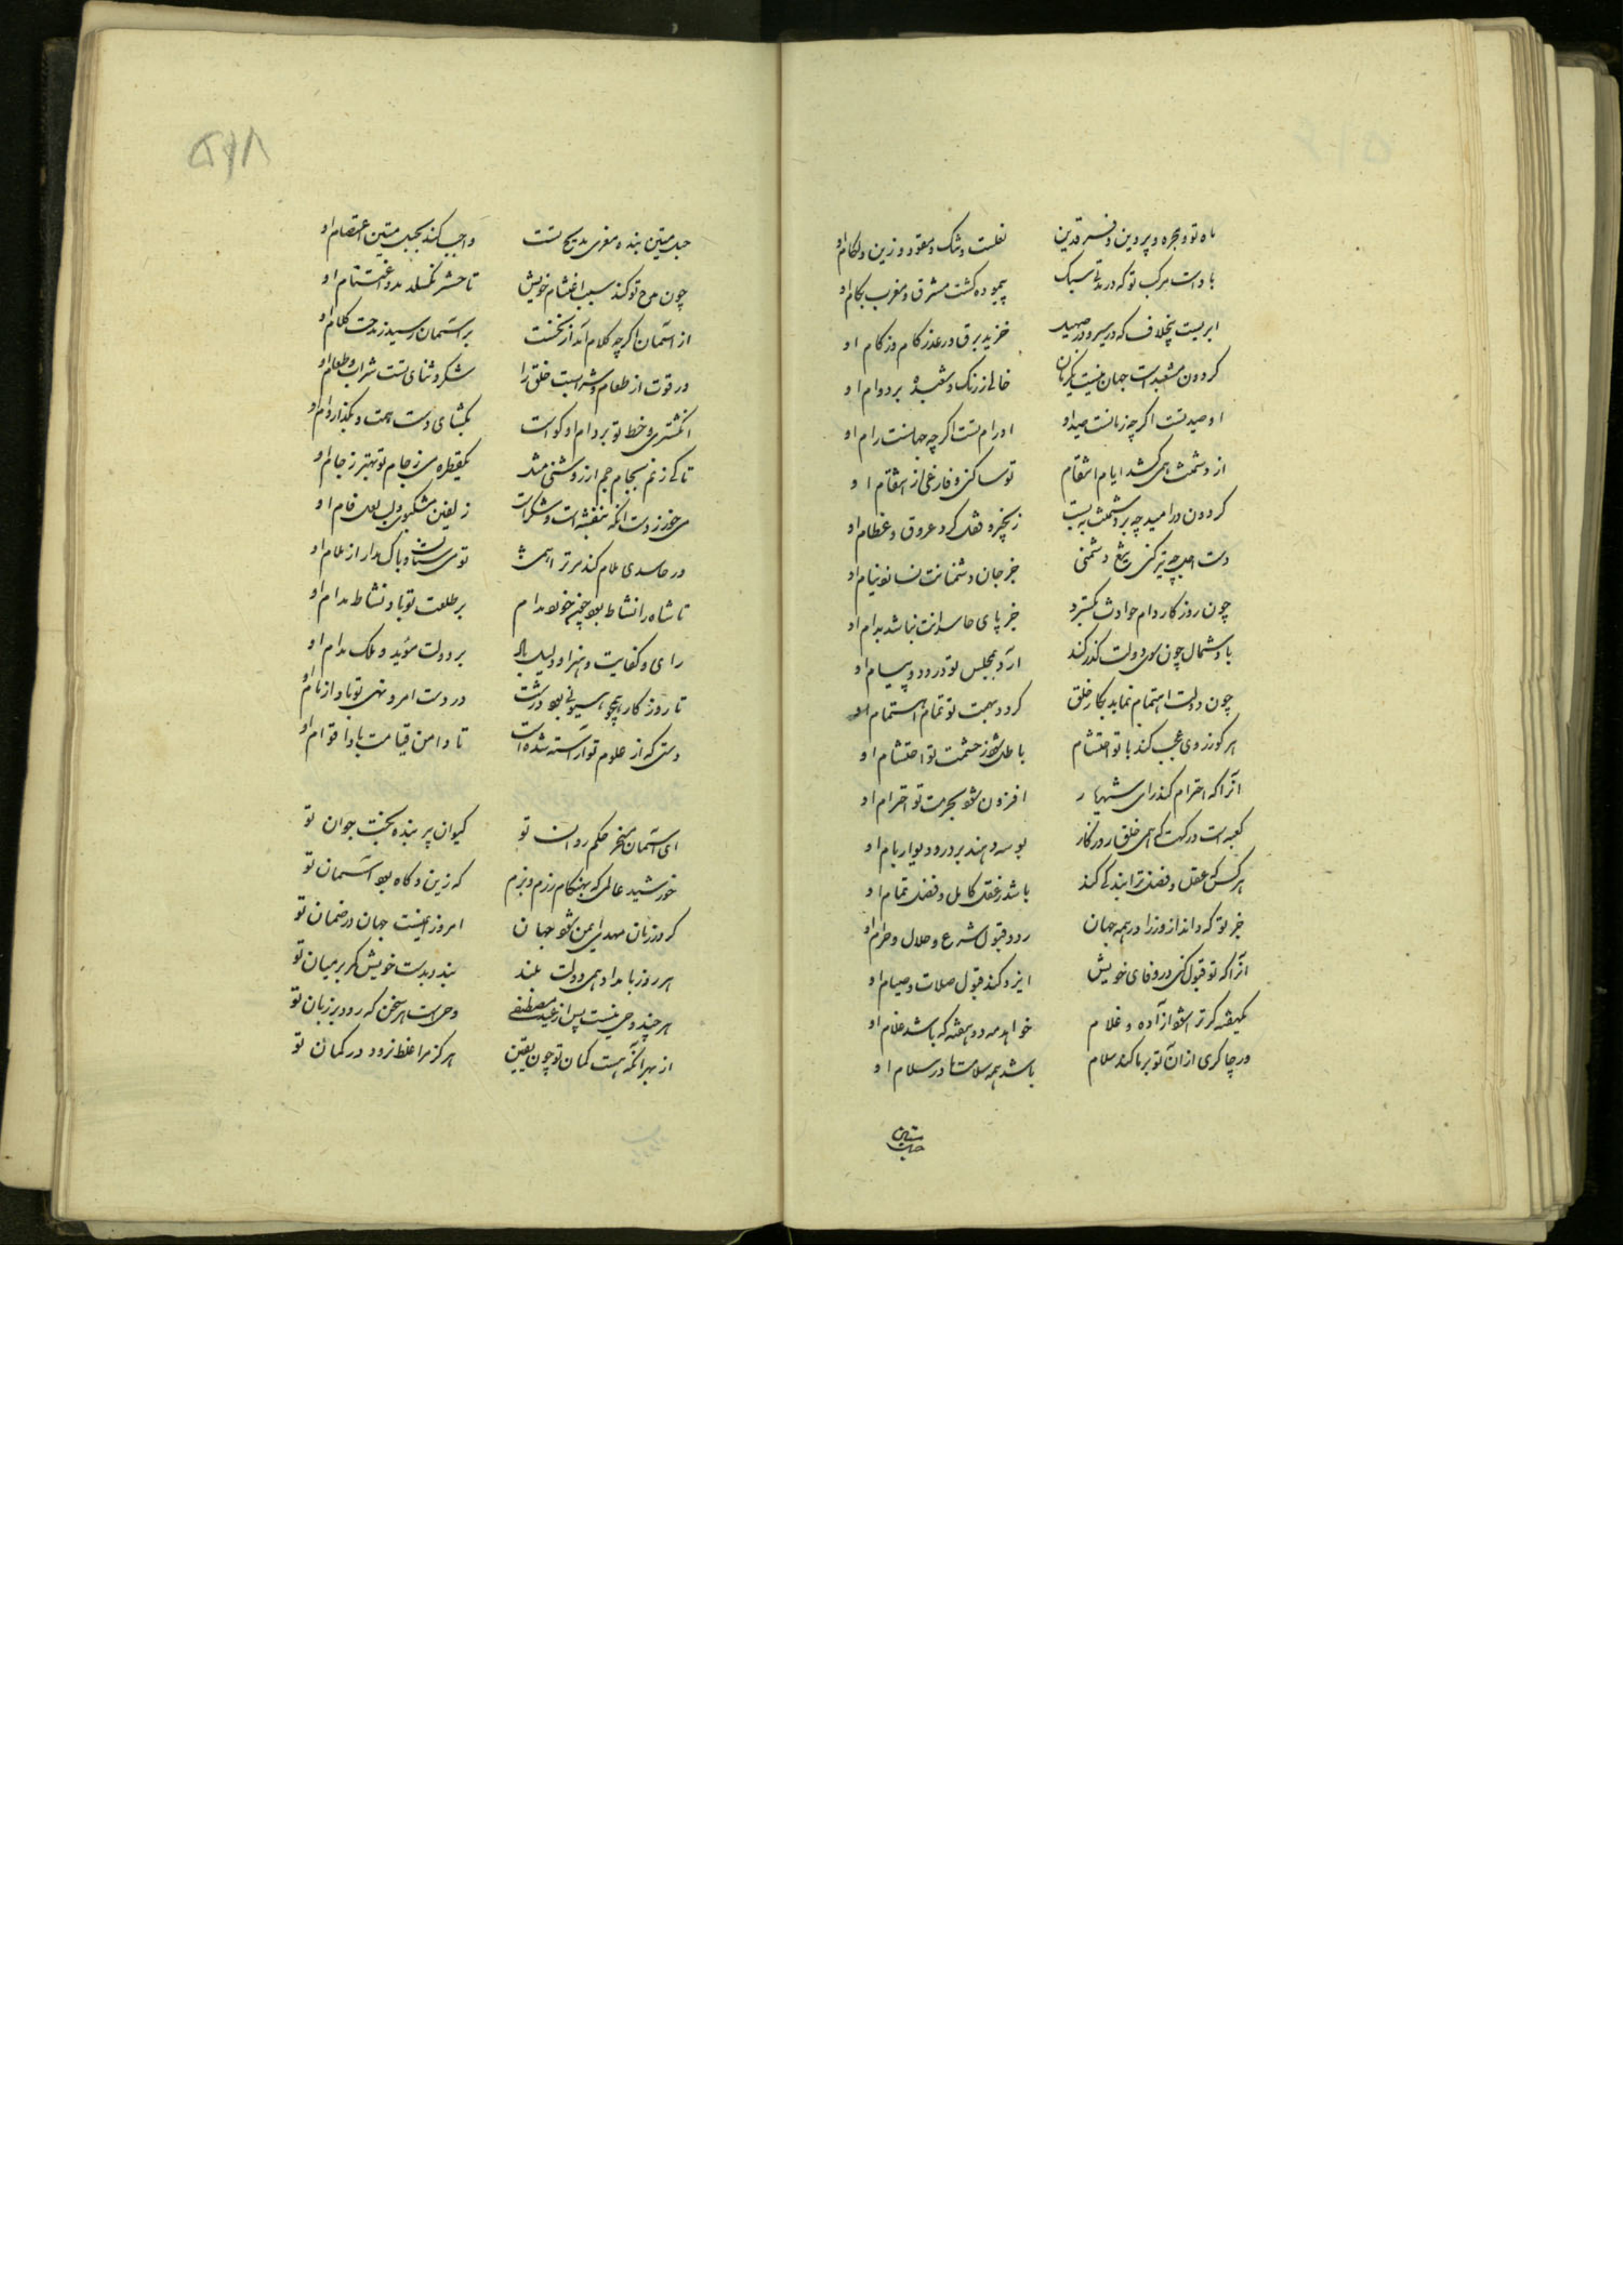 ماه نو و مجره و پروین و فرقدین نعلست و تنک و مقود و زین و لکام او
بادست مرکب تو که در تک سبک پیموده کشت مشرق و مغرب بکام او
ابریست بیخلاف که در سیر و در صهیل خیزد برق و رعد ز کام و ز کام او
کردون مشعبد است جهان نیست یکزمان خالی ز رنک و شعبده بر دوام او
او صید تست اکرچه زمانست صید او او رام تست اکرچه جهانست رام او
از دشمنت همی کشد ایام انتقام تو ساکنی و فارغی از انتقام او
کردون در امید چو بر دشمنت ببست زنجیر و غل کرد عروق و عظام او
دست اجل چو تیز کند تیغ دشمنی جز جان دشمنانت نسازد نیام او
چون روزکار دام حوادث بکسترد جز پای حاسدانت نباشد بدام او
باد شمال چون سوی دولت کذر کند آرد بمجلس تو درود و پیام او
چون دولت اهتمام نماید بکار خلق کردد بهمت تو تمام اهتمام او
هر کو ز روی عجب کند با تو احتشام باطل شود ز حشمت تو احتشام او
آنرا که احترام کند رای شهریار افزون شود بحرمت تو احترام او
کعبه است درکهت که همی خلق روزکار بوسه دهند بر در و دیوار و بام او
هر کس که عقل و فضل ترا بندکی کند باشد ز عقل کامل و فضل تمام او
جز تو که داند از وزرا در همه جهان رد و قبول شرع و حلال و حرام او
آنرا که تو قبول کنی در وفای خویش ایزد کند قبول صلات و صیام او
یکهفته کر ترا شود آزاده و غلام خواهد مه دو هفته که باشد غلام او
ور چاکری از آن تو بر ما کند سلام باشد همه سلامت ما در سلام او
حبل متین
حبل متین بنده معزی مدیح تست واجب کند بحبل متین اعتصام او
چون مدح تو کند سبب اغتنام خویش تا حشر نکسلد مدد اغتنام او
از آسمان اکرچه کلام آمد از نخست بر آسمان رسید ز مدحت کلام او
ور قوت از طعام و شرابست خلق را شکر و ثنای تست شراب و طعام او
انکشتری و خط تو بر دام او کواست بکشای دست همت و بکذار وام او
تا کی زنم بجام جم از روشنی مثل یکقطره می ز جام تو بهتر ز جام او
می خور ز دست آنکه بنفشه است و شکرست زلفین مشکبوی و لب لعل فام او
ور حاسدی ملام کند مر ترا همی تو می ستان و باک مدار از ملام او
تا شاه را نشاط بود جفت خود مدام بر طلعت تو باد نشاط مدام او
رای و کفایت و هنر او دلیل باد بر دولت مؤید و ملک مدام او
تا روزکار همچو هیونی بود درشت در دست امر و نهی تو بادا زمام او
دستی که از علوم تو آراسته شده است تا دامن قیامت بادا قوام او
ای آسمان مسخر حکم روان تو کیوان پیر بنده بخت جوان تو
خورشید عالمی که بهنکام رزم و بزم که زین و کاه بود آسمان تو
کر در زمان مهدی ایمن شود جهان امروز ایمنست جهان در ضمان تو
هر روز بامداد همی دولت بلند بندد بدست خویش کمر بر میان تو
هر چند وحی نیست پس از مصطفی وحی است هر سخن که رود بر زبان تو
از بهر آنکه هست کمان تو چون یقین هرکز مرا غلط نرود در کمان تو